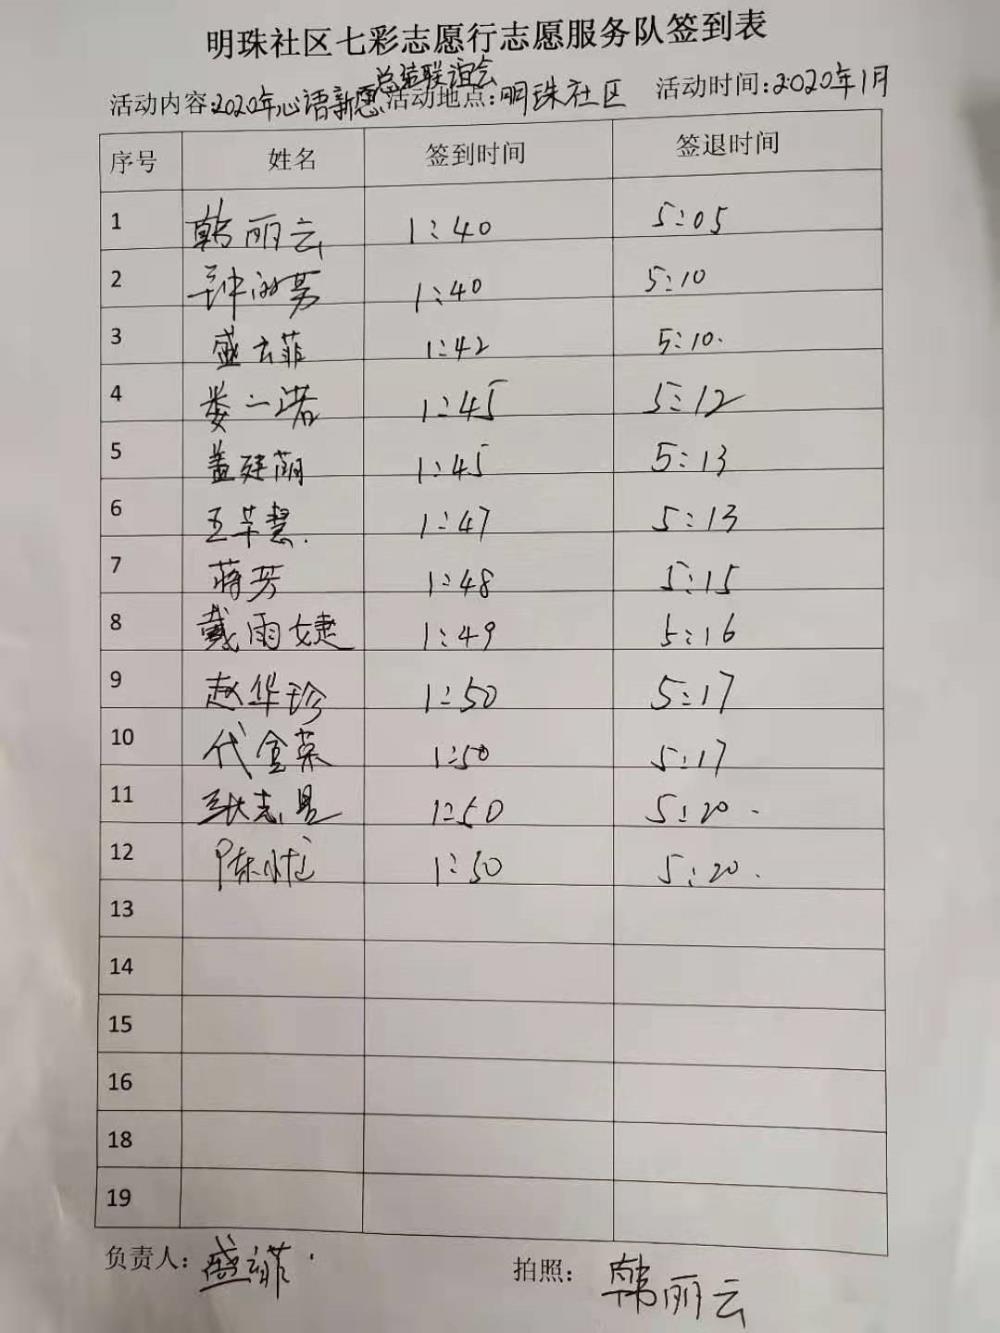 明珠社区七彩志愿行志愿服务队签到表
总结联谊会
活动内容:2020年心语新愿 活动地点:明珠社区 活动时间:2020年1月
序号 姓名 签到时间 签退时间
1 韩丽云 1:40 5:05
2 钟 1:40 5:10
3 盛云菲 1:42 5:10.
4 娄一诺 1:45 5:12
5 盖廷荫 1:45 5:13
6 王苹慧. 1:47 5:13
7 蒋芳 1:48 5:15
8 戴雨婕 1:49 5:16
9 赵华珍 1:50 5:17
10 代金菜 1:50 5:17
11 耿志 1:50 5:20.
12 陈 1:50 5:20.
13
14
15
16
18
19
负责人:盛云菲. 拍照:韩丽云